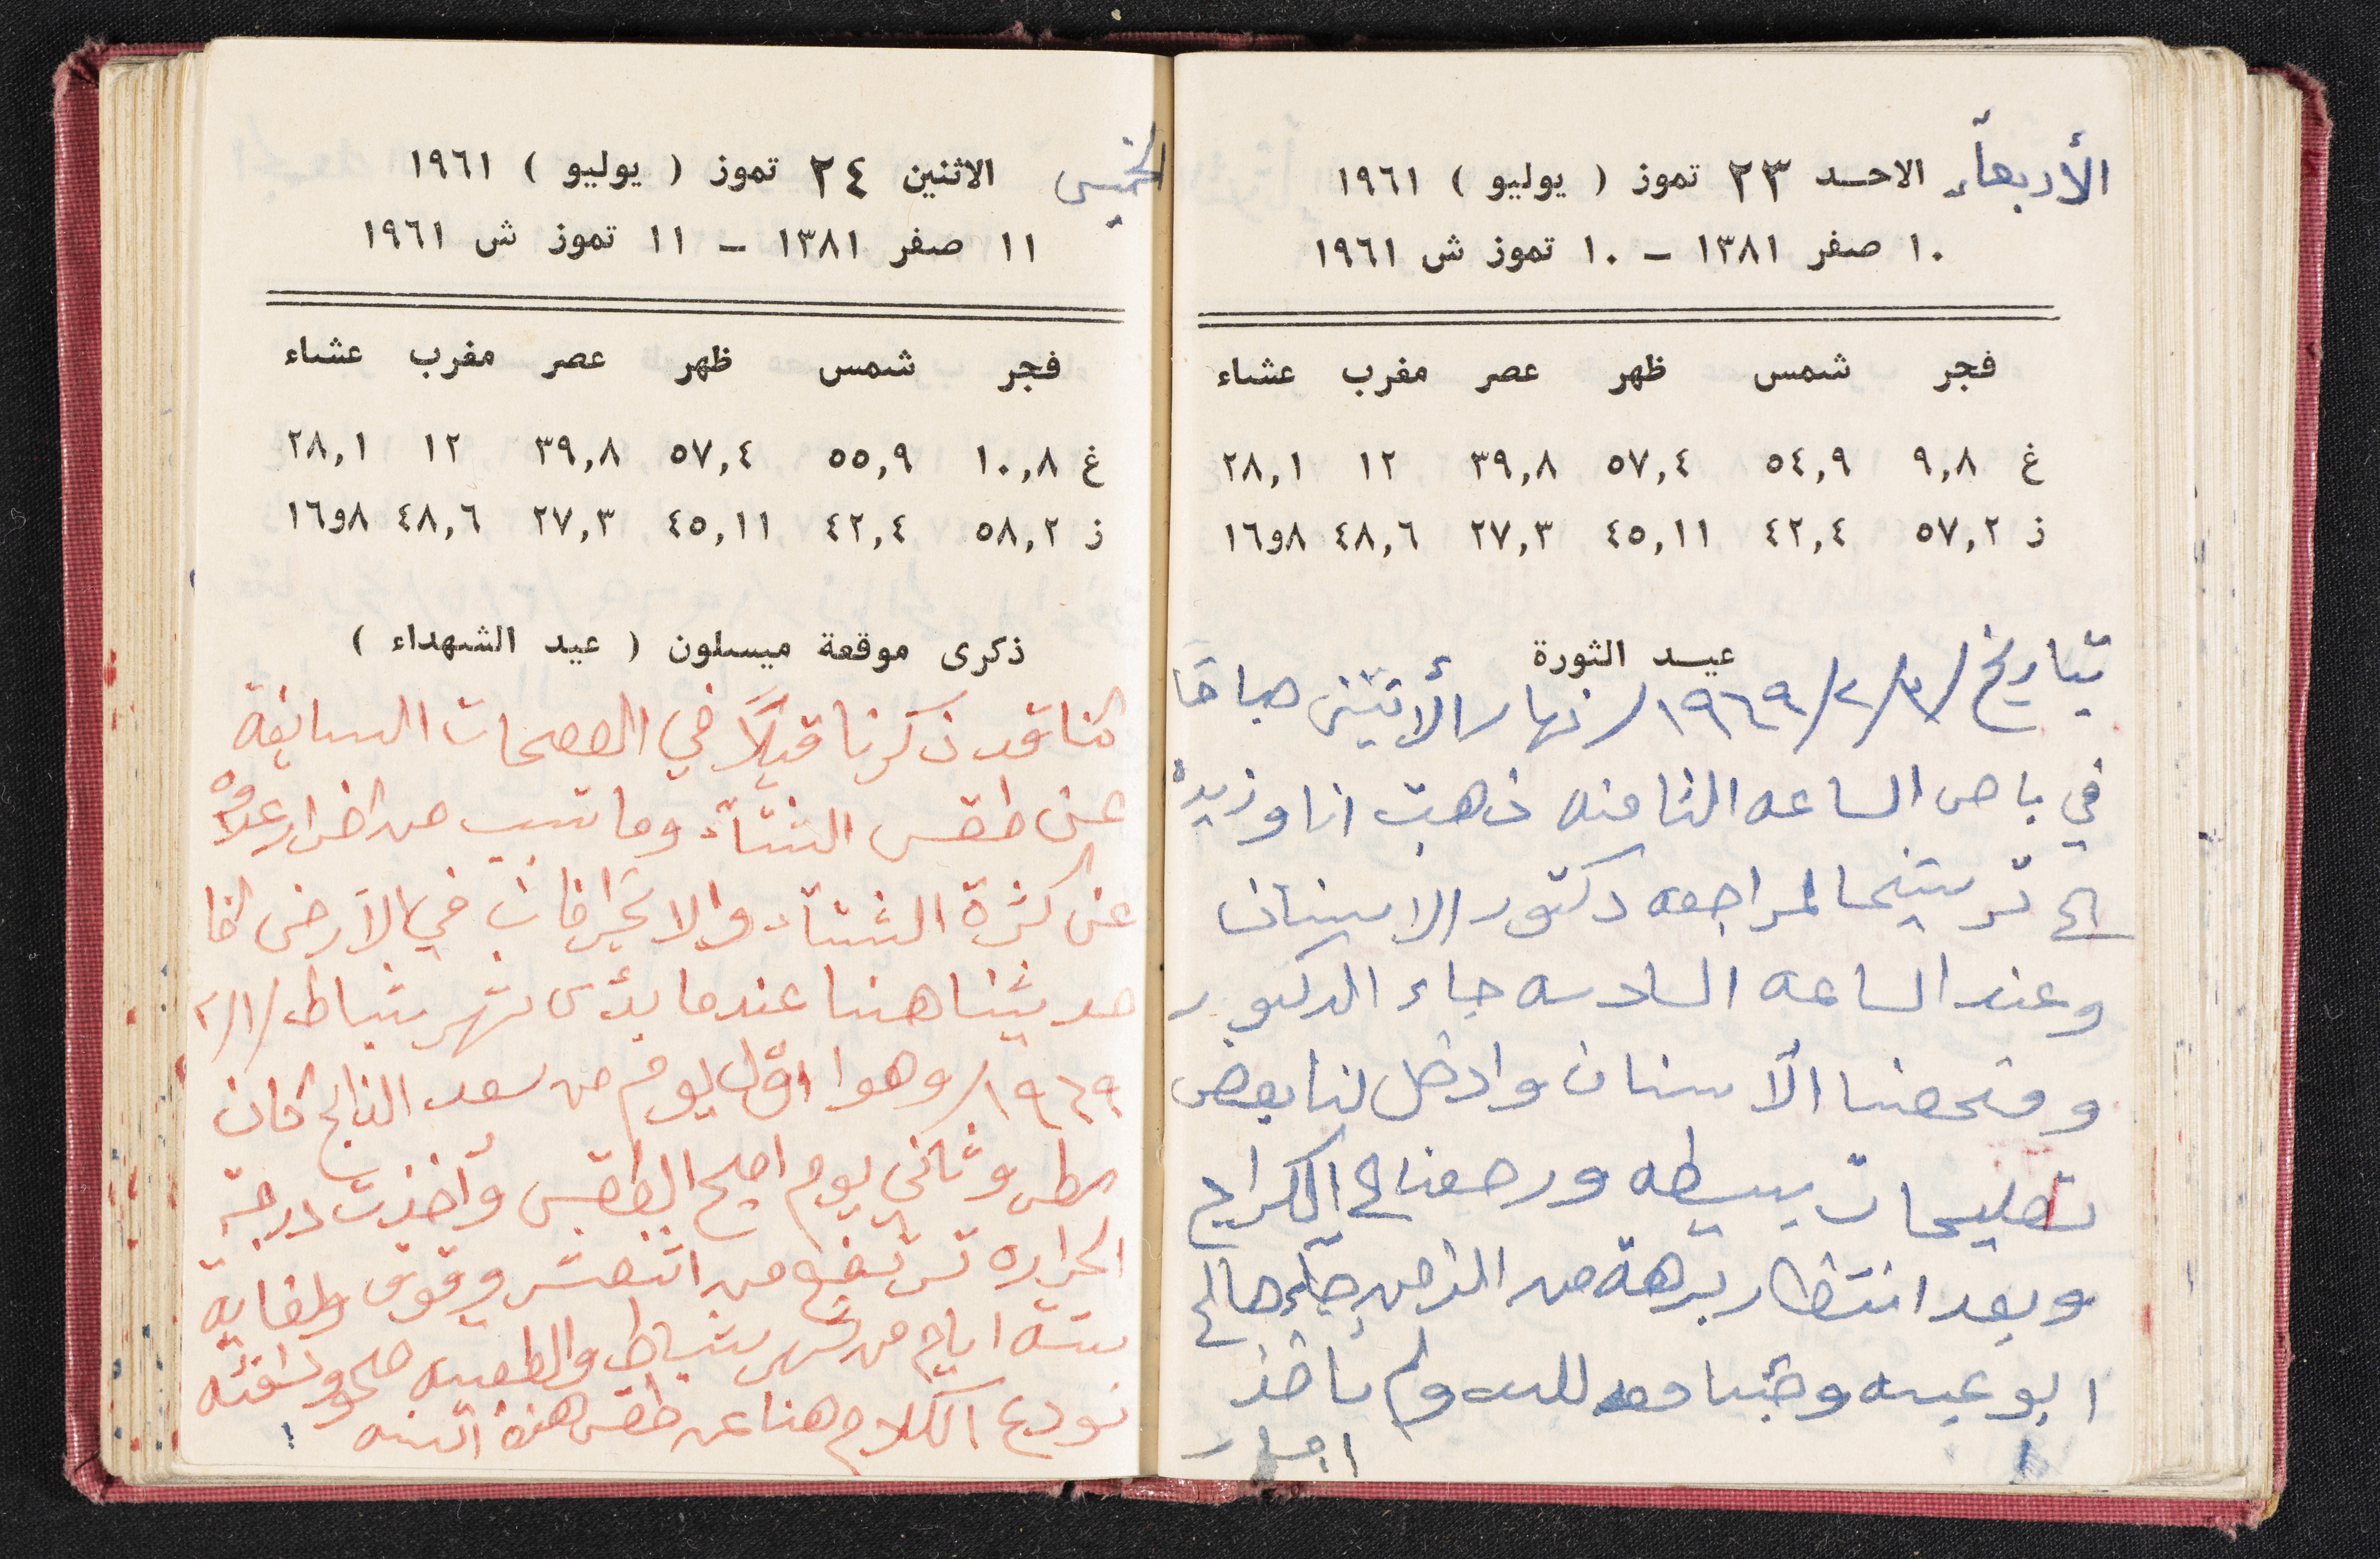 الأربعآء الاحد ٢٣ تموز ( يوليو ) ١٩٦١
١٠ صفر ١٣٨١ – ١٠ تموز ش ١٩٦١
فجر شمس ظهر عصر مغرب عشاء
غ ٩,٨ ٥٤,٩ ٥٧,٤ ٣٩,٨ ١٢ ٢٨,١
ز ٥٧,٢ ٤٢,٤ ٤٥,١١ ٢٧,٣ ٤٨,٦ ٨و١٦
عيد الثورة
بتاريخ /٣/٢/١٩٦٩/ نهار الأثنين صباحًا
في باص الساعه الثامنه ذهبت انا وزيد
الى ترشيحا لمراجعه دكتور الاسنان
وعند الساعه السادسه جاء الدكتور
وفحصنا الأسنان وادخل لنا بعض
تصليحات بسيطه ورجعنا الى الكراج
وبعد انتظار برهة من الزمن جآء صالح
ابو عيسه وجئنا معه للبيت ولم يأخذ
اجار
الخميس الاثنين ٢٤ تموز ( يوليو ) ١٩٦١
١١ صفر ١٣٨١ – ١١ تموز ش ١٩٦١
فجر شمس ظهر عصر مغرب عشاء
غ ١٠,٨ ٥٥,٩ ٥٧,٤ ٣٩,٨ ١٢ ٢٨,١
ز ٥٨,٢ ٤٢,٤ ٤٥,١١ ٢٧,٣ ٤٨,٦ ٨و١٦
ذكرى موقعة ميسلون ( عيد الشهداء )
كنا قد ذكرنا قبلًا في الصفحات السابقة
عن طقس الشتآء وما تسبب من اضرار علاوه
عن كثرة الشتآء والانجرافات في الأرض اما
حديثنا هنا عندما بدئ شهر شباط /٢/١
١٩٦٩/ وهوا اوّل يوم من سعد الذابح كان
مطر وثاني يوم اصبح الطقس وأخذت درجة
الحراره ترتفع من اثنعشر وفوق ولغاية
ستة ايام من شهر شباط والطقس صحو ودافئه
نودع الكلام هنا عن طقس هذه السنه